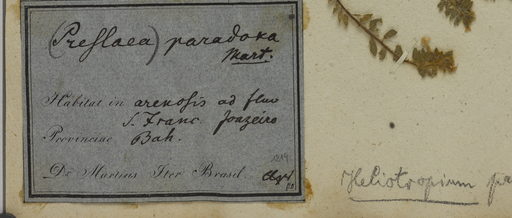 (Preslaea) paradoxa
Mart.
Habitat in arenosis ad fluv
S. Franc Joazeiro
Provinciae Bah.
Dr Martius Iter Brasil
Heliotropium pa